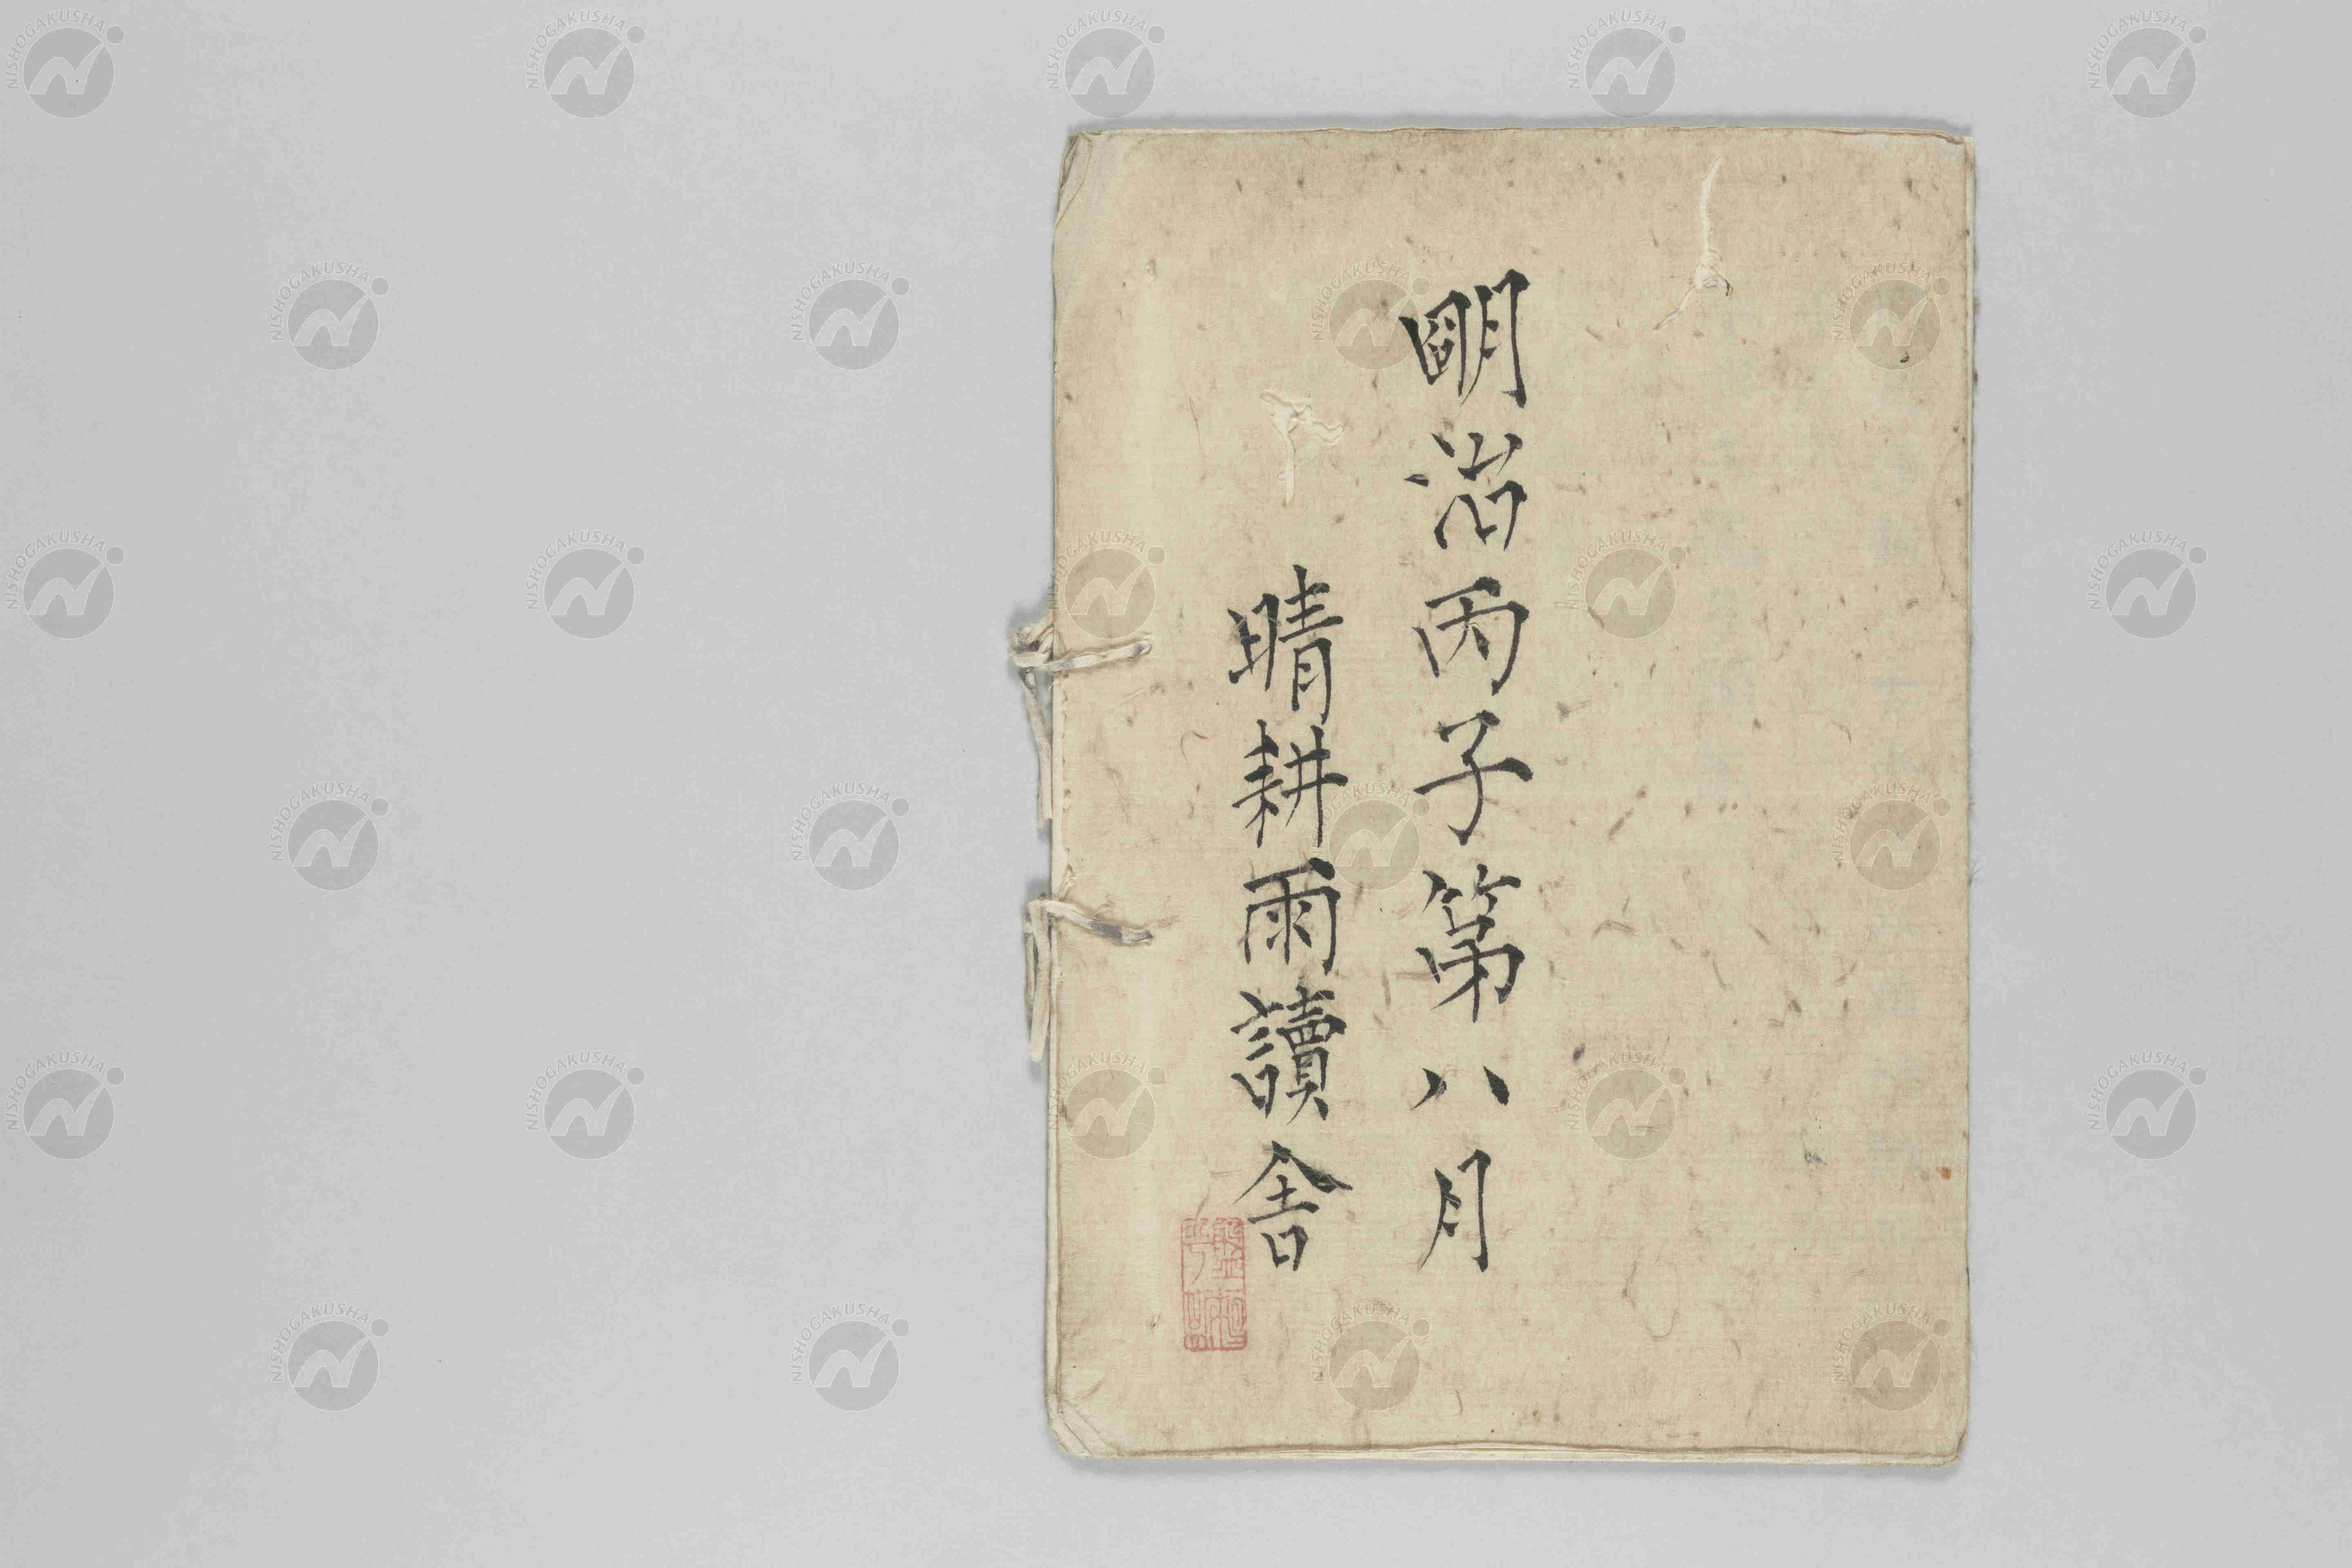 明治丙子第八月
晴耕雨讀舍
NISHOGAKUSHA